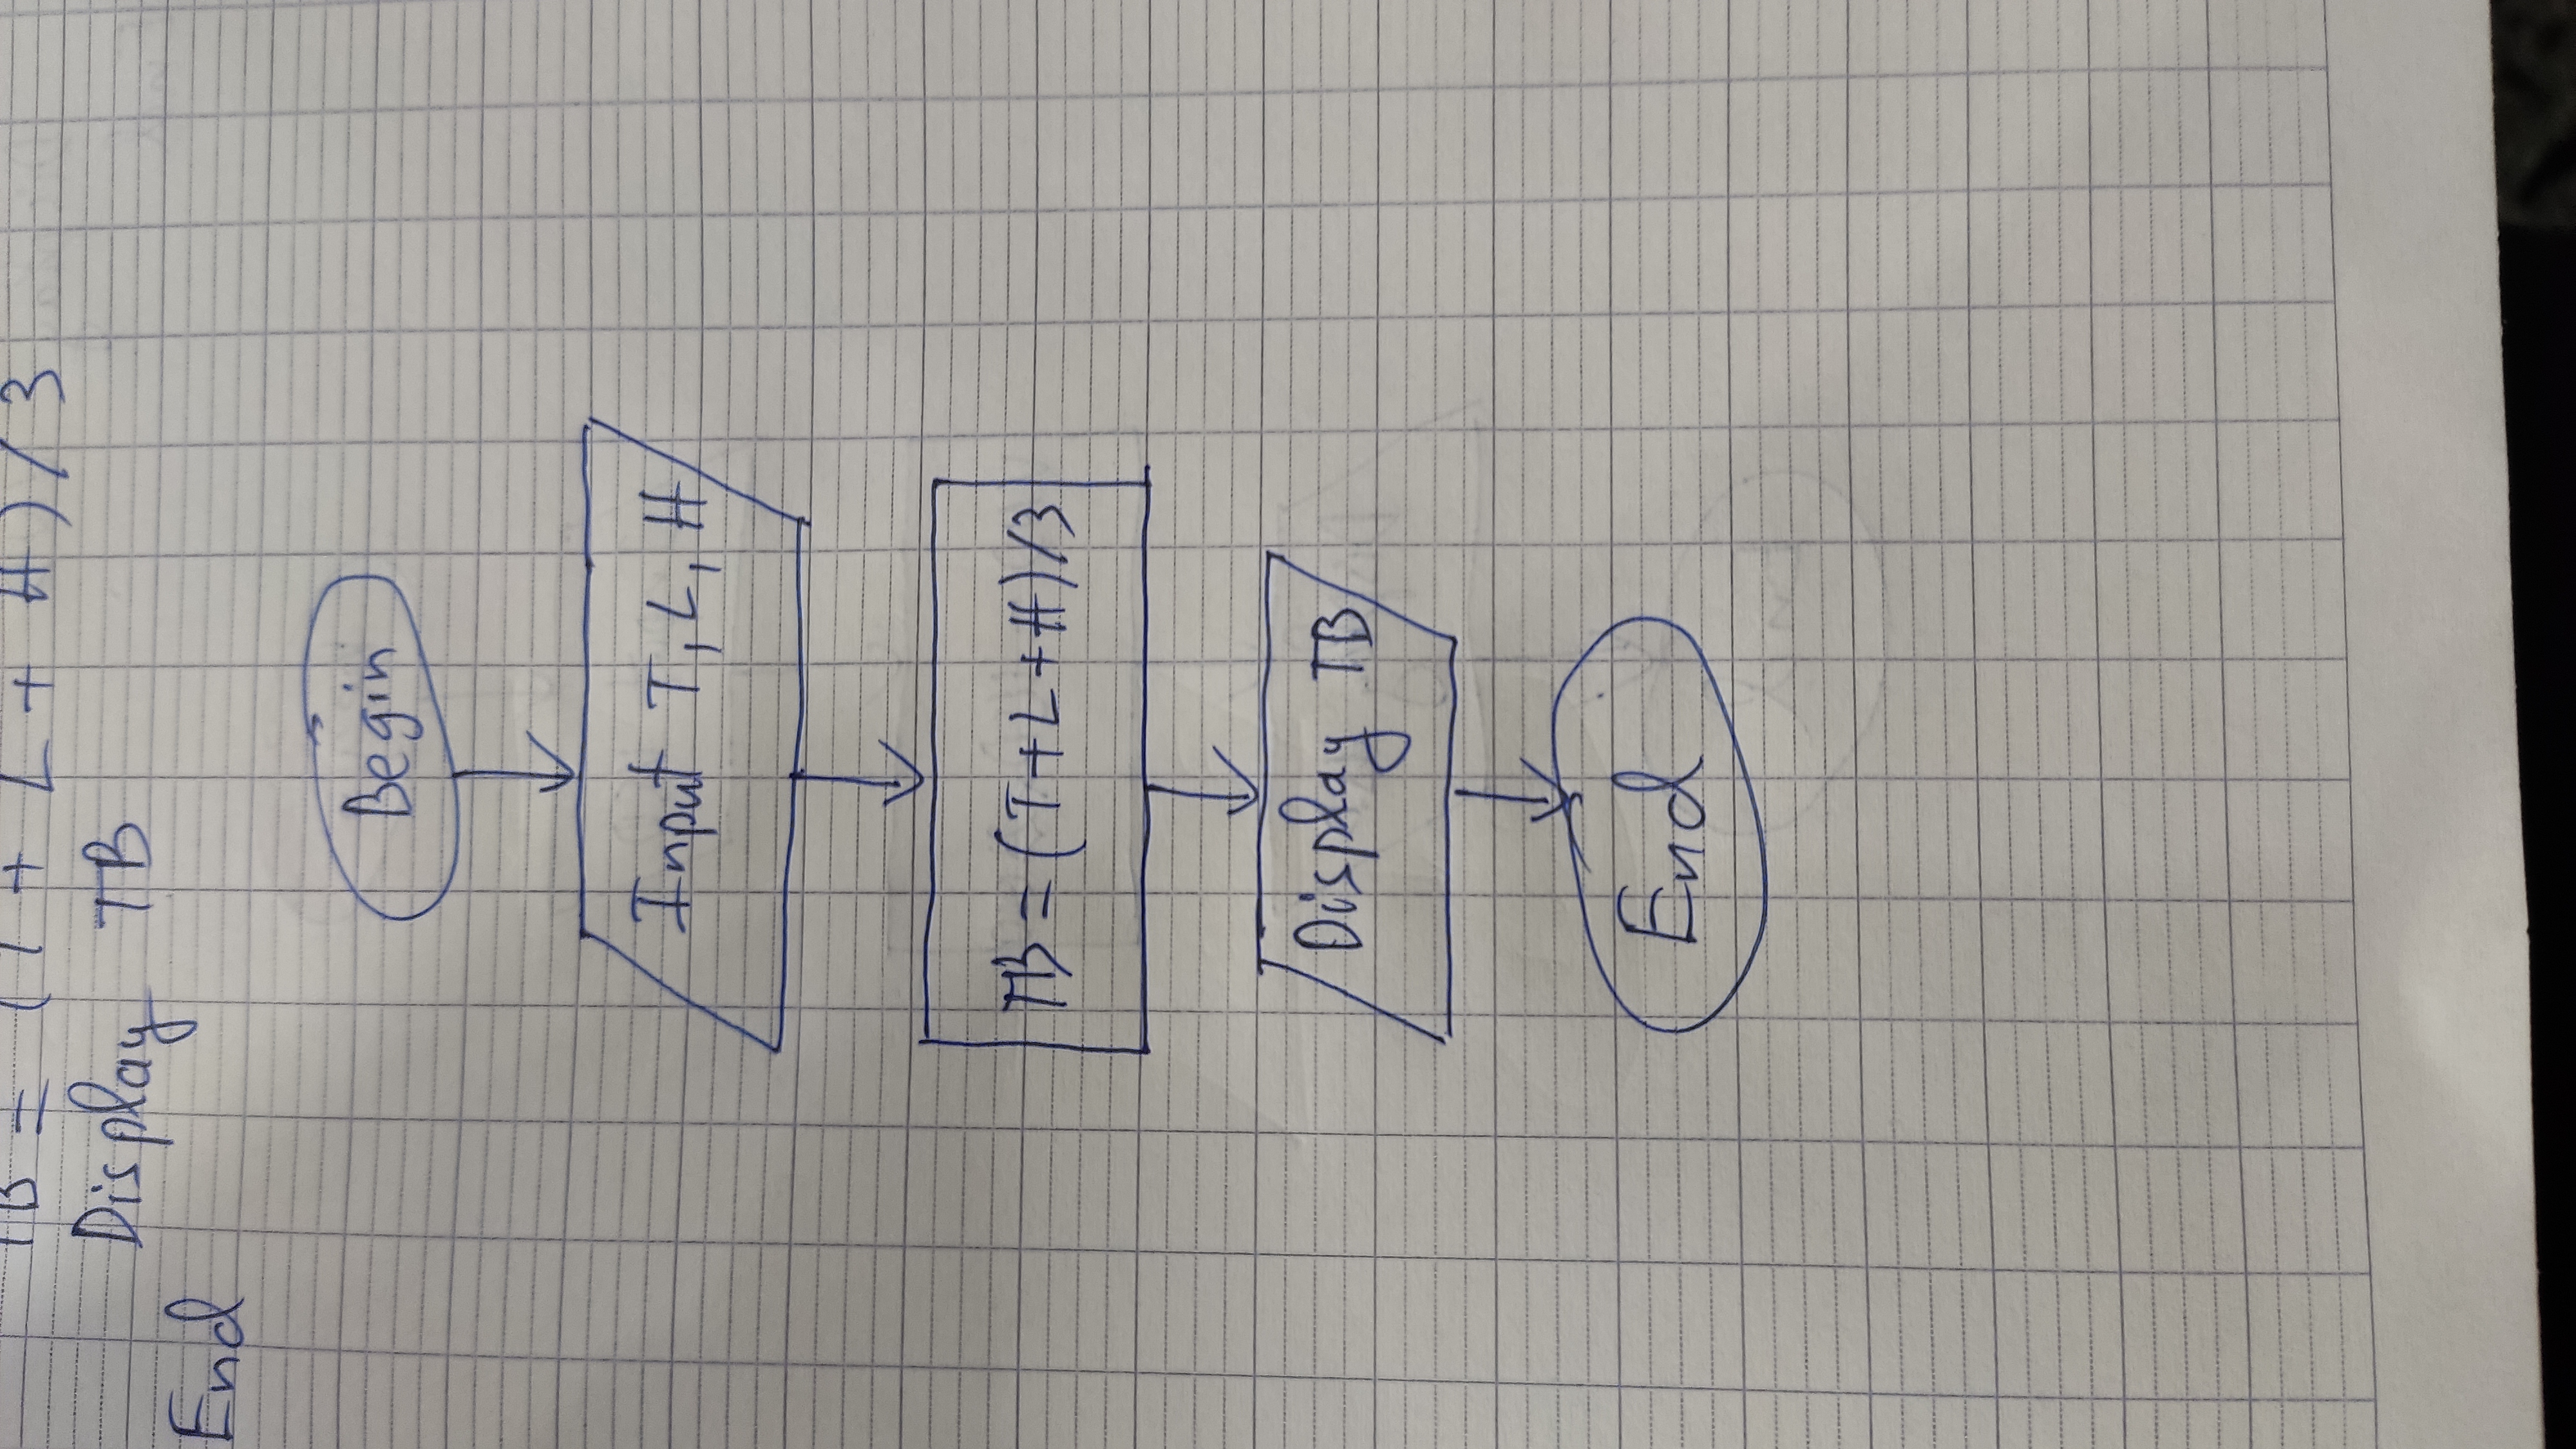 TB = (T + L + H) / 3
Display TB
End
Begin
Input T, L, H
TB = (T+L+H)/3
Display TB
End